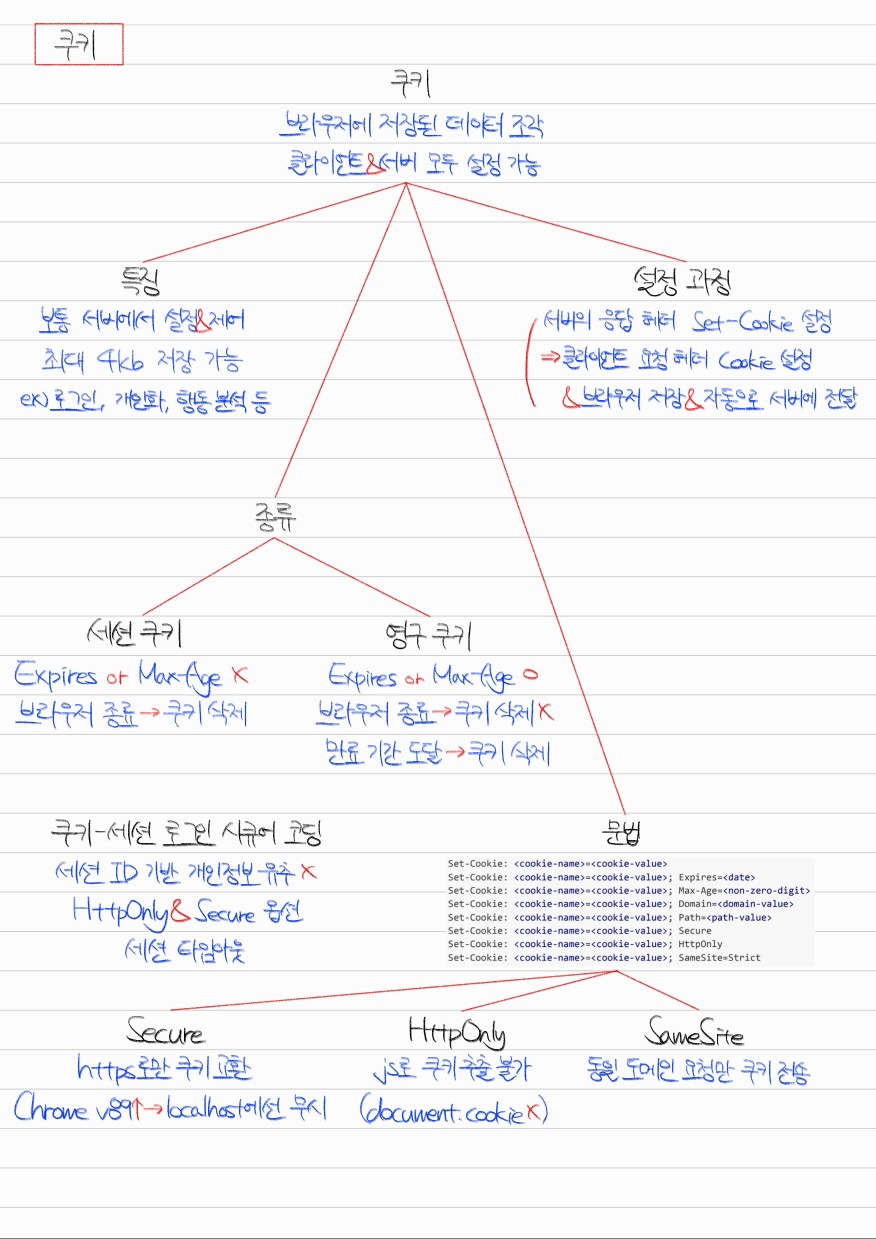 쿠키
쿠키
브라우저에 저장된 데이터 조각
클라이언트&서버 모두 설정 가능
특징
보통 서버에서 설정&제어
최대 4kb 저장 가능
ex) 로그인, 개인화, 행동 분석 등
설정 과정
서버의 응답 헤더 Set-Cookie 설정
⇒클라이언트 요청 헤더 Cookie 설정
&브라우저 저장&자동으로 서버에 전달
종류
세션 쿠키
Expires or Max-Age X
브라우저 종료→쿠키 삭제
영구 쿠키
Expires or Max-Age O
브라우저 종료→쿠키 삭제X
만료 기간 도달→쿠키 삭제
쿠키-세션 로그인 시큐어 코딩
세션 ID 기반 개인정보 유추 X
HttpOnly&Secure 옵션
세션 타임아웃
문법
Set-Cookie: <cookie-name>=<cookie-value>
Set-Cookie: <cookie-name>=<cookie-value>; Expires=<date>
Set-Cookie: <cookie-name>=<cookie-value>; Max-Age=<non-zero-digit>
Set-Cookie: <cookie-name>=<cookie-value>; Domain=<domain-value>
Set-Cookie: <cookie-name>=<cookie-value>; Path=<path-value>
Set-Cookie: <cookie-name>=<cookie-value>; Secure
Set-Cookie: <cookie-name>=<cookie-value>; HttpOnly
Set-Cookie: <cookie-name>=<cookie-value>; SameSite=Strict
Secure
https로만 쿠키 교환
Chrome v89↑→localhost에선 무시
HttpOnly
js로 쿠키 추출 불가
(document.cookie X)
SameSite
동일 도메인 요청만 쿠키 전송